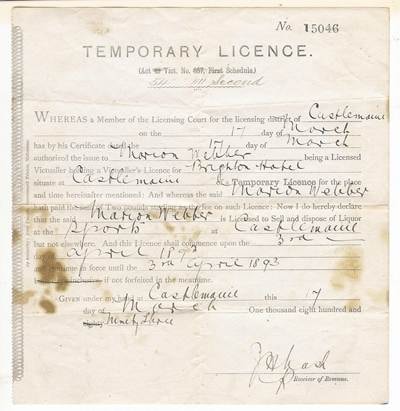 No. 15046
TEMPORARY LICENCE.
(Act Vict. No. 857, First Schedule.)
Second
WHEREAS a Member of the Licensing Court for the licensing district of Castlemaine
on the 17 day of March
has by his Certificate dated the 17 day of March
authorized the issue to Marion Webber being a Licensed
Victualler having a Victualler's Licence for Brighton Hotel
situate at Castlemaine of a Temporary Licence for the place
and time hereinafter mentioned: And whereas the said Marion Webber
hath paid the sum of Two pounds as the fee on such Licence: Now I do hereby declare
that the said Marion Webber is Licensed to Sell and dispose of Liquor
at the Sports at Castlemaine
but not elsewhere. And this Licence shall commence upon the 3rd
April 1893
and continue in force until the 3rd April 1893
inclusive if not forfeited in the meantime.
GIVEN under my hand at Castlemaine this 17
day of March One thousand eight hundred and
Ninety three
Receiver of Revenue.